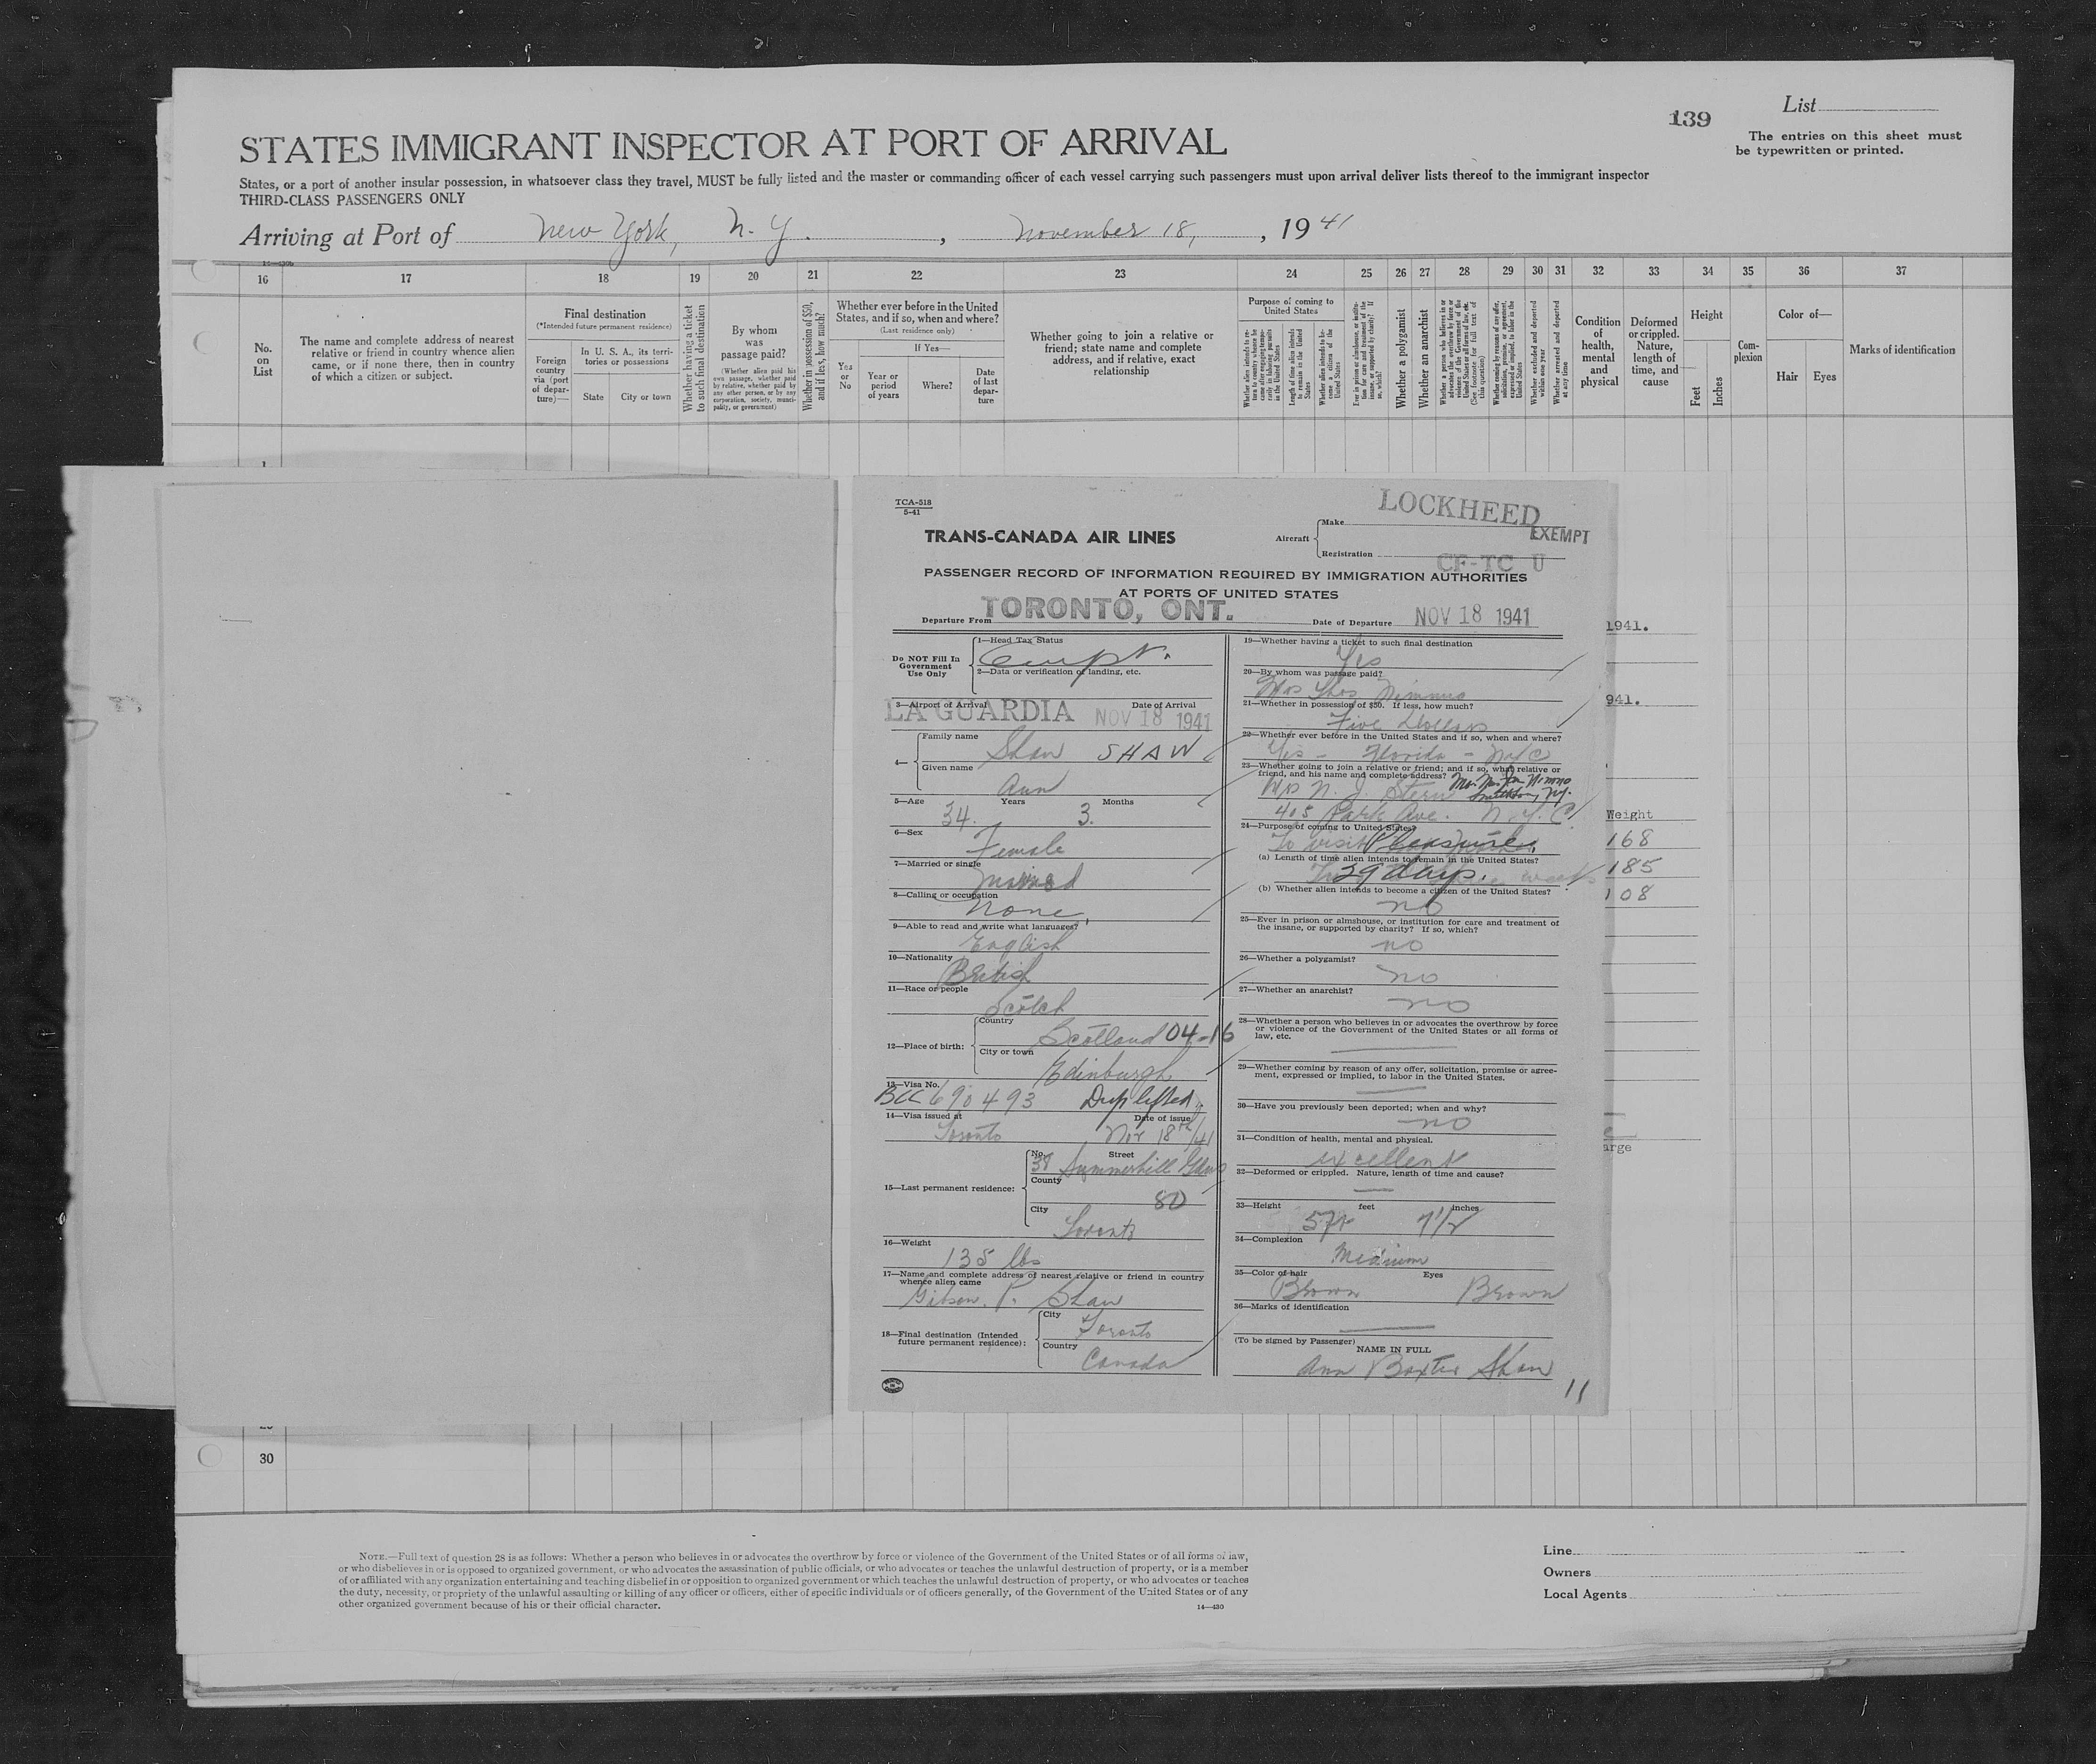 139
List
The entries on this sheet must
be typewritten or printed.
STATES IMMIGRANT INSPECTOR AT PORT OF ARRIVAL
States, or a port of another insular possession, in whatsoever class they travel, MUST be fully listed and the master or commanding officer of each vessel carrying such passengers must upon arrival deliver lists thereof to the immigrant inspector
THIRD-CLASS PASSENGERS ONLY
Arriving at Port of New York, N. Y. , November 18, , 19 41
16 17 18 19 20 21 22 23 24 25 26 27 28 29 30 31 32 33 34 35 36 37
No.
on
List
The name and complete address of nearest
relative or friend in country whence alien
came, or if none there, then in country
of which a citizen or subject.
Final destination
(*Intended future permanent residence)
Foreign
country
via (port
of depar-
ture)—
In U. S. A., its terri-
tories or possessions
State
City or town
Whether having a ticket
to such final destination
By whom
was
passage paid?
(Whether alien paid his
own passage, whether paid
by relative, whether paid by
any other person, or by any
corporation, society, munici-
pality, or government)
Whether in possession of $50,
and if less, how much?
Whether ever before in the United
States, and if so, when and where?
(Last residence only)
If Yes—
Yes
or
No
Year or
period
of years
Where?
Date
of last
depar-
ture
Whether going to join a relative or
friend; state name and complete
address, and if relative, exact
relationship
Purpose of coming to
United States
Whether a polygamist
Whether an anarchist
Condition
of
health,
mental
and
physical
Deformed
or crippled.
Nature,
length of
time, and
cause
Height
Feet
Inches
Com-
plexion
Color of—
Hair
Eyes
Marks of identification
1
TCA-518
5-41
LOCKHEED
TRANS-CANADA AIR LINES
Aircraft
Make
EXEMPT
Registration
CF-TC U
PASSENGER RECORD OF INFORMATION REQUIRED BY IMMIGRATION AUTHORITIES
AT PORTS OF UNITED STATES
Departure From TORONTO, ONT.
Date of Departure NOV 18 1941
Do NOT Fill In
Government
Use Only
1—Head Tax Status
2—Data or verification of landing, etc.
3—Airport of Arrival Date of Arrival
LA GUARDIA NOV 18 1941
4—
Family name
Shaw SHAW
Given name
Ann
5—Age Years Months
34. 3.
6—Sex
Female
7—Married or single
8—Calling or occupation
none
9—Able to read and write what languages?
English
10—Nationality
British
11—Race or people
Scotch
12—Place of birth:
Country
Scotland 04-16
City or town
Edinburgh
13—Visa No.
BCC 690493 Dup lifted
14—Visa issued at Date of issue
Toronto Nov 18th/41
15—Last permanent residence:
No. Street
38 Summerhill Gdns
County
80
City
Toronto
16—Weight
135 lbs
17—Name and complete address of nearest relative or friend in country
whence alien came
Gibson. P. Shaw
18—Final destination (Intended
future permanent residence):
City
Toronto
Country
Canada
19—Whether having a ticket to such final destination
Yes
20—By whom was passage paid?
Mrs Thos Nimmo
21—Whether in possession of $50. If less, how much?
Five Dollars
22—Whether ever before in the United States and if so, when and where?
Yes - Florida - NYC
23—Whether going to join a relative or friend; and if so, what relative or
friend, and his name and complete address?
Mrs N. J. Stern
405 Park Ave. N.Y.C.
24—Purpose of coming to United States?
To visit Pleasure.
(a) Length of time alien intends to remain in the United States?
29 days.
(b) Whether alien intends to become a citizen of the United States?
no
25—Ever in prison or almshouse, or institution for care and treatment of
the insane, or supported by charity? If so, which?
no
26—Whether a polygamist?
no
27—Whether an anarchist?
no
28—Whether a person who believes in or advocates the overthrow by force
or violence of the Government of the United States or all forms of
law, etc.
29—Whether coming by reason of any offer, solicitation, promise or agree-
ment, expressed or implied, to labor in the United States.
30—Have you previously been deported; when and why?
no
31—Condition of health, mental and physical.
excellent
32—Deformed or crippled. Nature, length of time and cause?
33—Height feet inches
5ft 7 1/2
34—Complexion
Medium
35—Color of hair Eyes
Brown Brown
36—Marks of identification
(To be signed by Passenger)
NAME IN FULL
Ann Baxter Shaw
11
1941.
941.
Weight
168
185
108
arge
30
NOTE.—Full text of question 28 is as follows: Whether a person who believes in or advocates the overthrow by force or violence of the Government of the United States or of all forms of law,
or who disbelieves in or is opposed to organized government, or who advocates the assassination of public officials, or who advocates or teaches the unlawful destruction of property, or is a member
of or affiliated with any organization entertaining and teaching disbelief in or opposition to organized government or which teaches the unlawful destruction of property, or who advocates or teaches
the duty, necessity, or propriety of the unlawful assaulting or killing of any officer or officers, either of specific individuals or of officers generally, of the Government of the United States or of any
other organized government because of his or their official character.
14—430
Line
Owners
Local Agents